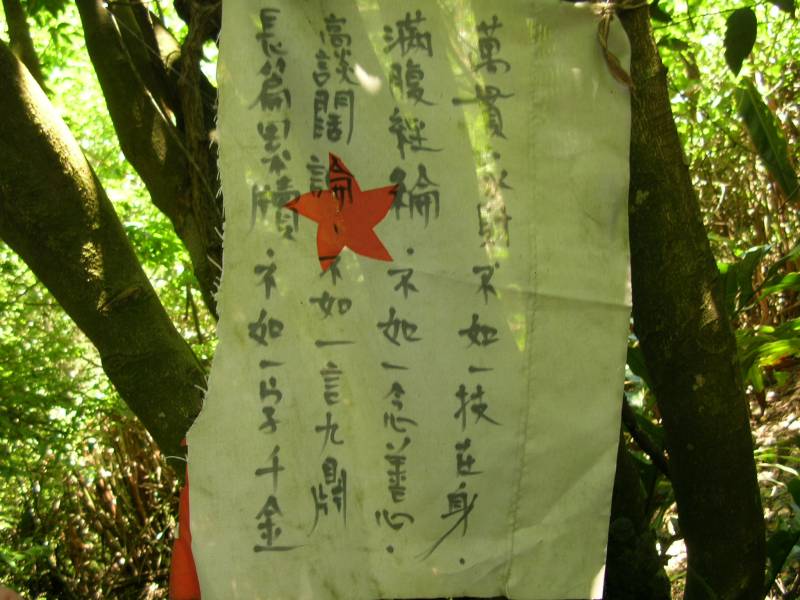 萬貫家財不如一技在身.
滿腹經綸.不如一念善心.
高談闊論.不如一言九鼎
長篇累牘.不如一字千金